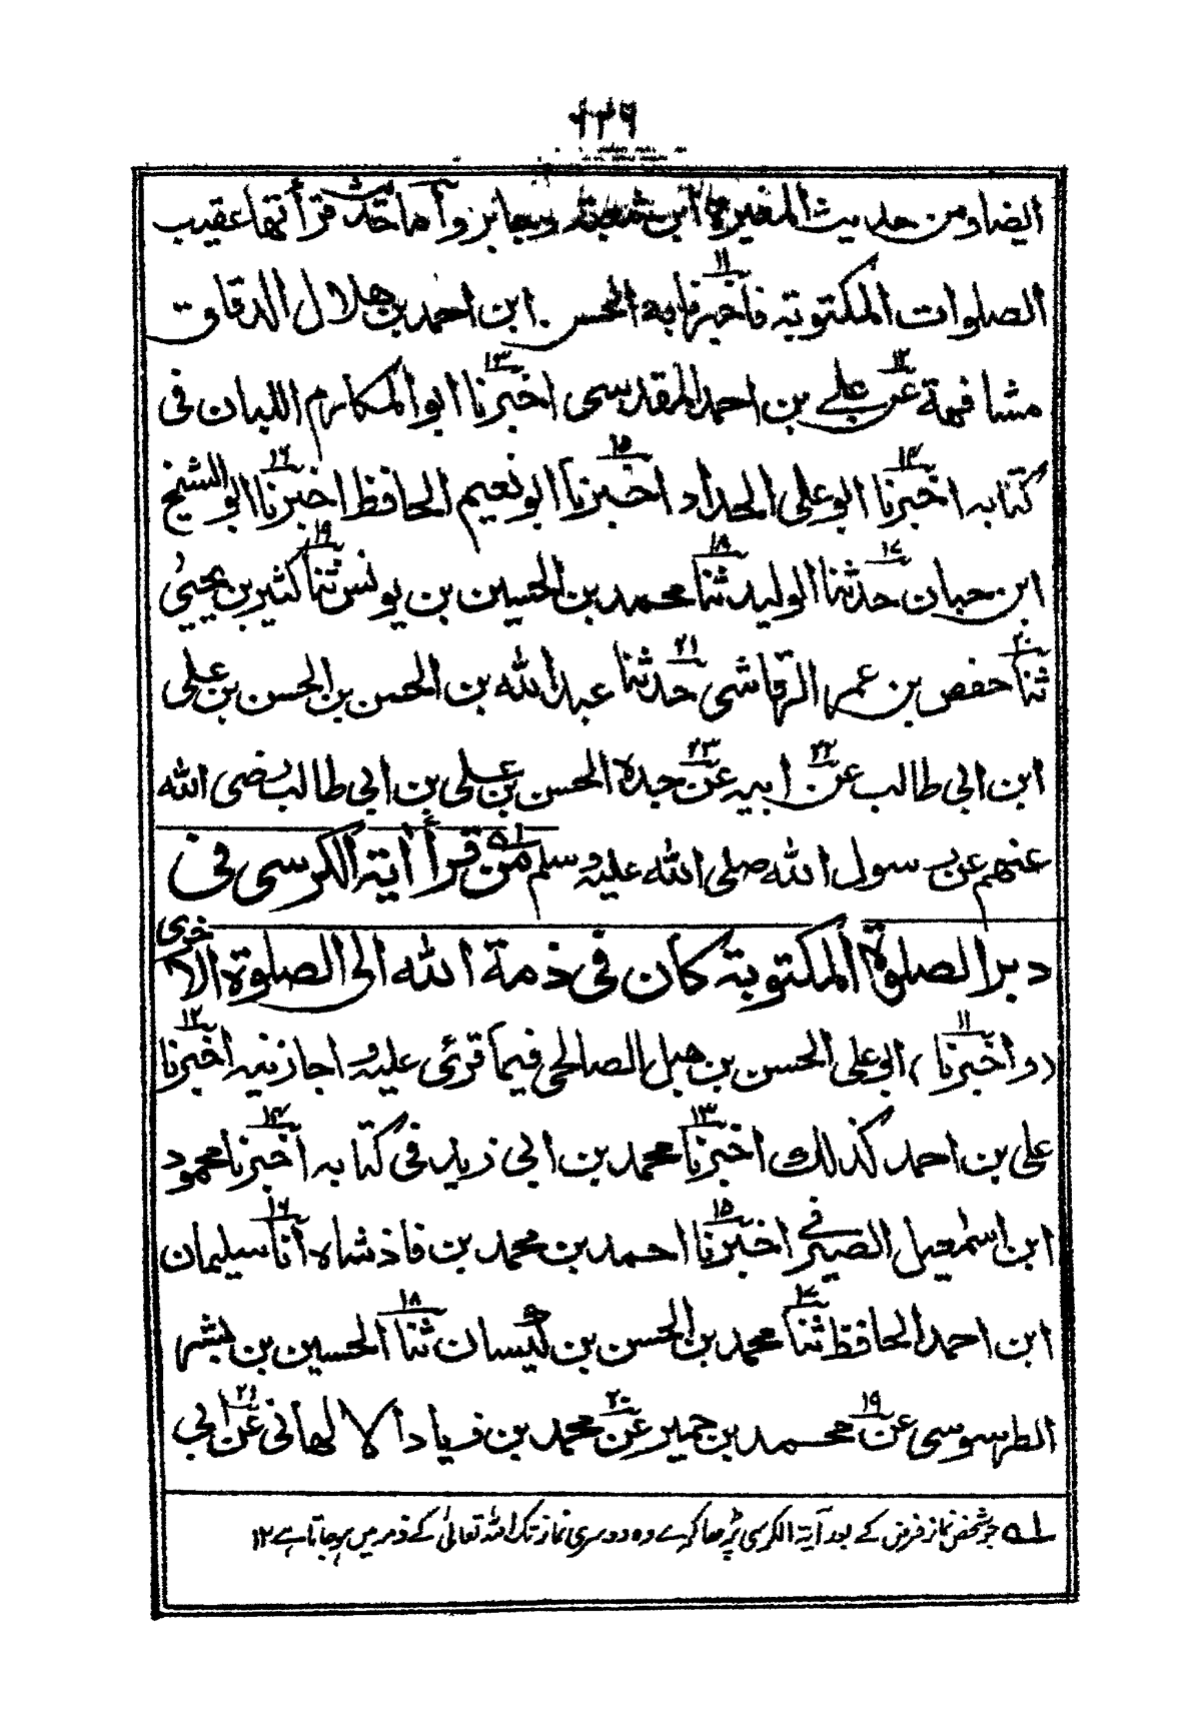 ۲۳۶
ايضا ومن حديث المغيرة ابن شعبة وجابر وأما حديث قرأتها عقيب
الصلوات المكتوبة فأخبرنا به الحسن ابن احمد بن هلال الدقاق
مشافهة عن علي بن احمد المقدسى اخبرنا ابو المكارم اللبان فى
كتابه اخبرنا ابو على الحداد اخبرنا ابو نعيم الحافظ اخبرنا ابو الشيخ
ابن حبان حدثنا الوليد ثنا محمد بن الحسين بن يونس ثنا كثير بن يحيىٰ
ثنا حفص بن عمر الرقاشى حدثنا عبد الله بن الحسن بن الحسن بن على
ابن ابى طالب عن ابيه عن جده الحسن بن على بن ابى طالب رضى الله
عنهم عن رسول الله صلى الله عليه وسلم من قرأ أية الكرسى فى
دبر الصلوة المكتوبة كان فى ذمة الله الى الصلوة الاخرى
(واخبرنا) ابو على الحسن بن هبل الصالحى فيما قرئ عليه واجازنيه اخبرنا
على بن احمد كذلك اخبرنا محمد بن ابى زيد فى كتابه اخبرنا محمود
ابن اسمعيل الصيرفى اخبرنا احمد بن محمد بن فاذشاه أنا سليمان
ابن احمد الحافظ ثنا محمد بن الحسن بن كيسان ثنا الحسين بن بشر
الطرسوسى عن محمد بن حمير عن محمد بن زياد الالهانى عن ابى
۱ه جو شخص نماز فرض کے بعد آیة الکرسی پڑھا کرے وہ دوسری نماز تک اللہ تعالیٰ کے ذمہ میں ہوجاتا ہے ۱۲